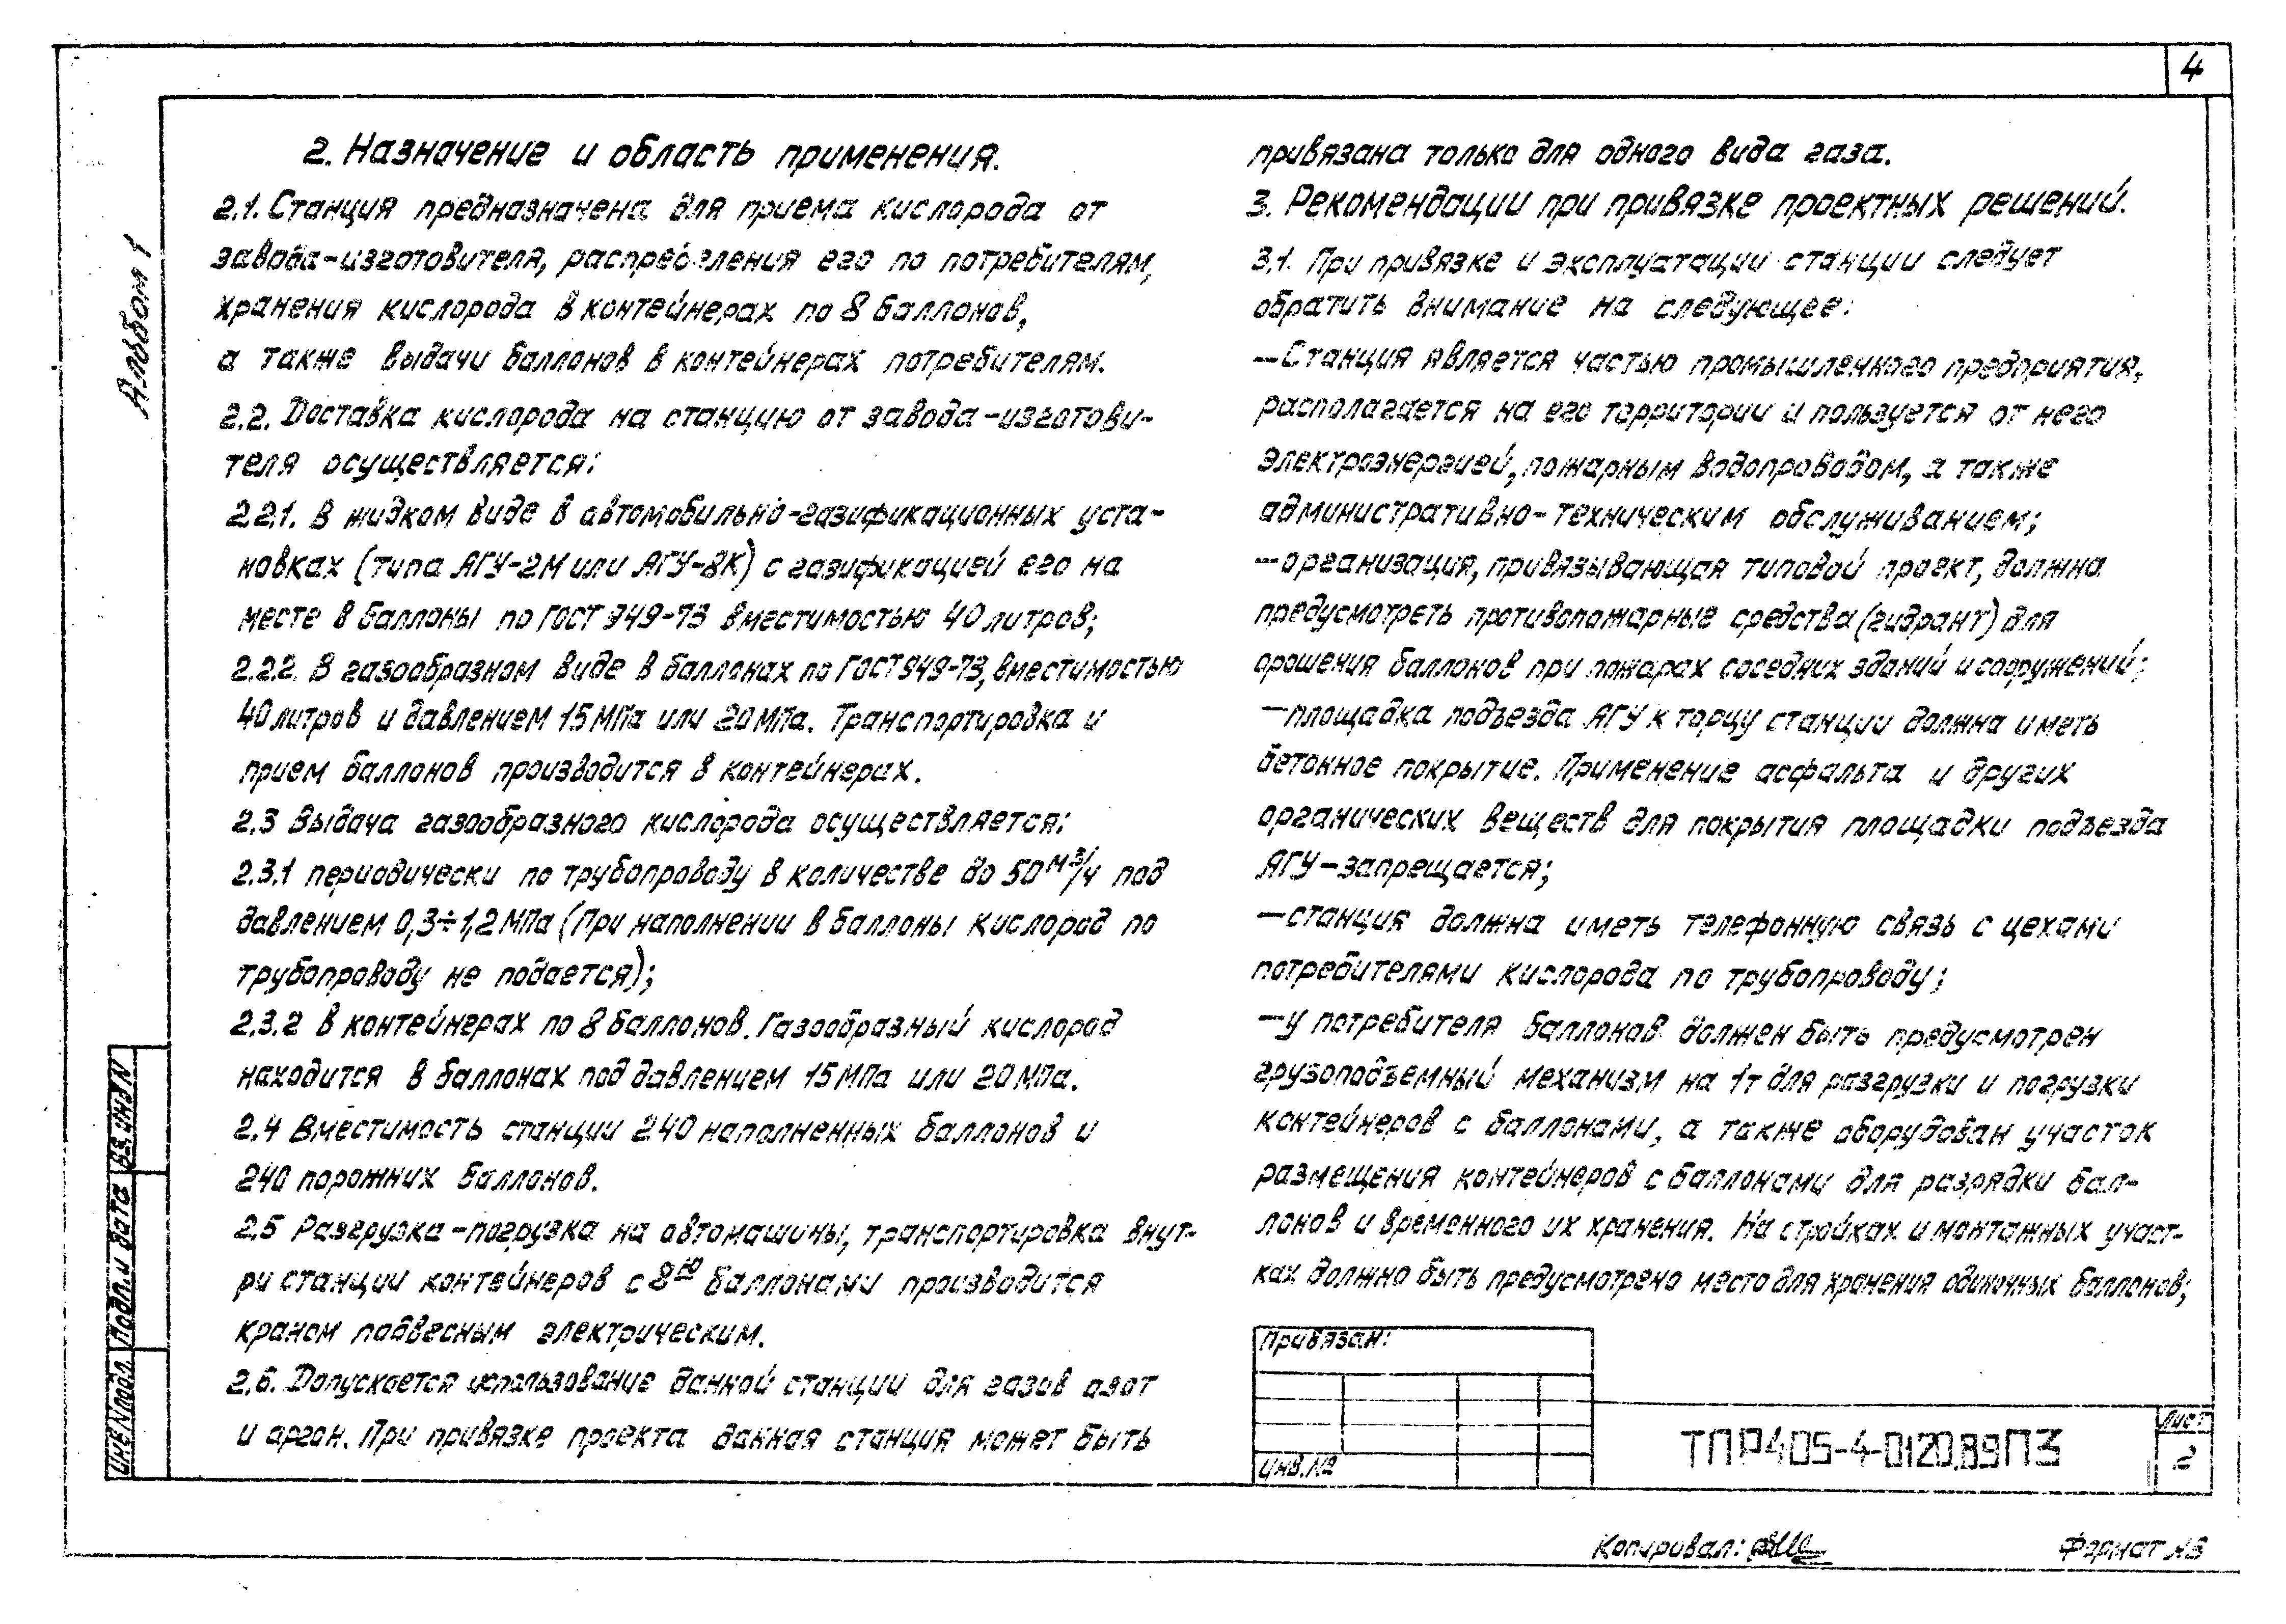 4
Альбом 1
2. Назначение и область применения.
2.1. Станция предназначена для приема кислорода от
завода-изготовителя, распределения его по потребителям,
хранения кислорода в контейнерах по 8 баллонов,
а также выдачи баллонов в контейнерах потребителям.
2.2. Доставка кислорода на станцию от завода-изготови-
теля осуществляется:
2.2.1. В жидком виде в автомобильно-газификационных уста-
новках (типа АГУ-2М или АГУ-8К) с газификацией его на
месте в баллоны по ГОСТ 949-73 вместимостью 40 литров;
2.2.2. В газообразном виде в баллонах по ГОСТ 949-73, вместимостью
40 литров и давлением 15 МПа или 20 МПа. Транспортировка и
прием баллонов производится в контейнерах.
2.3 Выдача газообразного кислорода осуществляется:
2.3.1 периодически по трубопроводу в количестве до 50 м³/ч под
давлением 0,3÷1,2 МПа (При наполнении в баллоны кислород по
трубопроводу не подается);
2.3.2 в контейнерах по 8 баллонов. Газообразный кислород
находится в баллонах под давлением 15 МПа или 20 МПа.
2.4 Вместимость станции 240 наполненных баллонов и
240 порожних баллонов.
2.5 Разгрузка-погрузка на автомашины, транспортировка внут-
ри станции контейнеров с 8ю баллонами производится
краном подвесным электрическим.
2.6. Допускается использование данной станции для газов азот
и аргон. При привязке проекта данная станция может быть
привязана только для одного вида газа.
3. Рекомендации при привязке проектных решений.
3.1. При привязке и эксплуатации станции следует
обратить внимание на следующее:
—Станция является частью промышленного предприятия,
располагается на его территории и пользуется от него
электроэнергией, пожарным водопроводом, а также
административно-техническим обслуживанием;
—организация, привязывающая типовой проект, должна
предусмотреть противопожарные средства (гидрант) для
орошения баллонов при пожарах соседних зданий и сооружений;
—площадка подъезда АГУ к торцу станции должна иметь
бетонное покрытие. Применение асфальта и других
органических веществ для покрытия площадки подъезда
АГУ—запрещается;
—станция должна иметь телефонную связь с цехами
потребителями кислорода по трубопроводу;
—у потребителя баллонов должен быть предусмотрен
грузоподъемный механизм на 1т для разгрузки и погрузки
контейнеров с баллонами, а также оборудован участок
размещения контейнеров с баллонами для разрядки бал-
лонов и временного их хранения. На стройках и монтажных участ-
ках должно быть предусмотрено место для хранения одиночных баллонов;
Привязан:
Инв.№
ТПР405-4-0120.89ПЗ
Лист
2
Инв N подл. Подп. и дата Вз. инв N
Копировал:
Формат А3